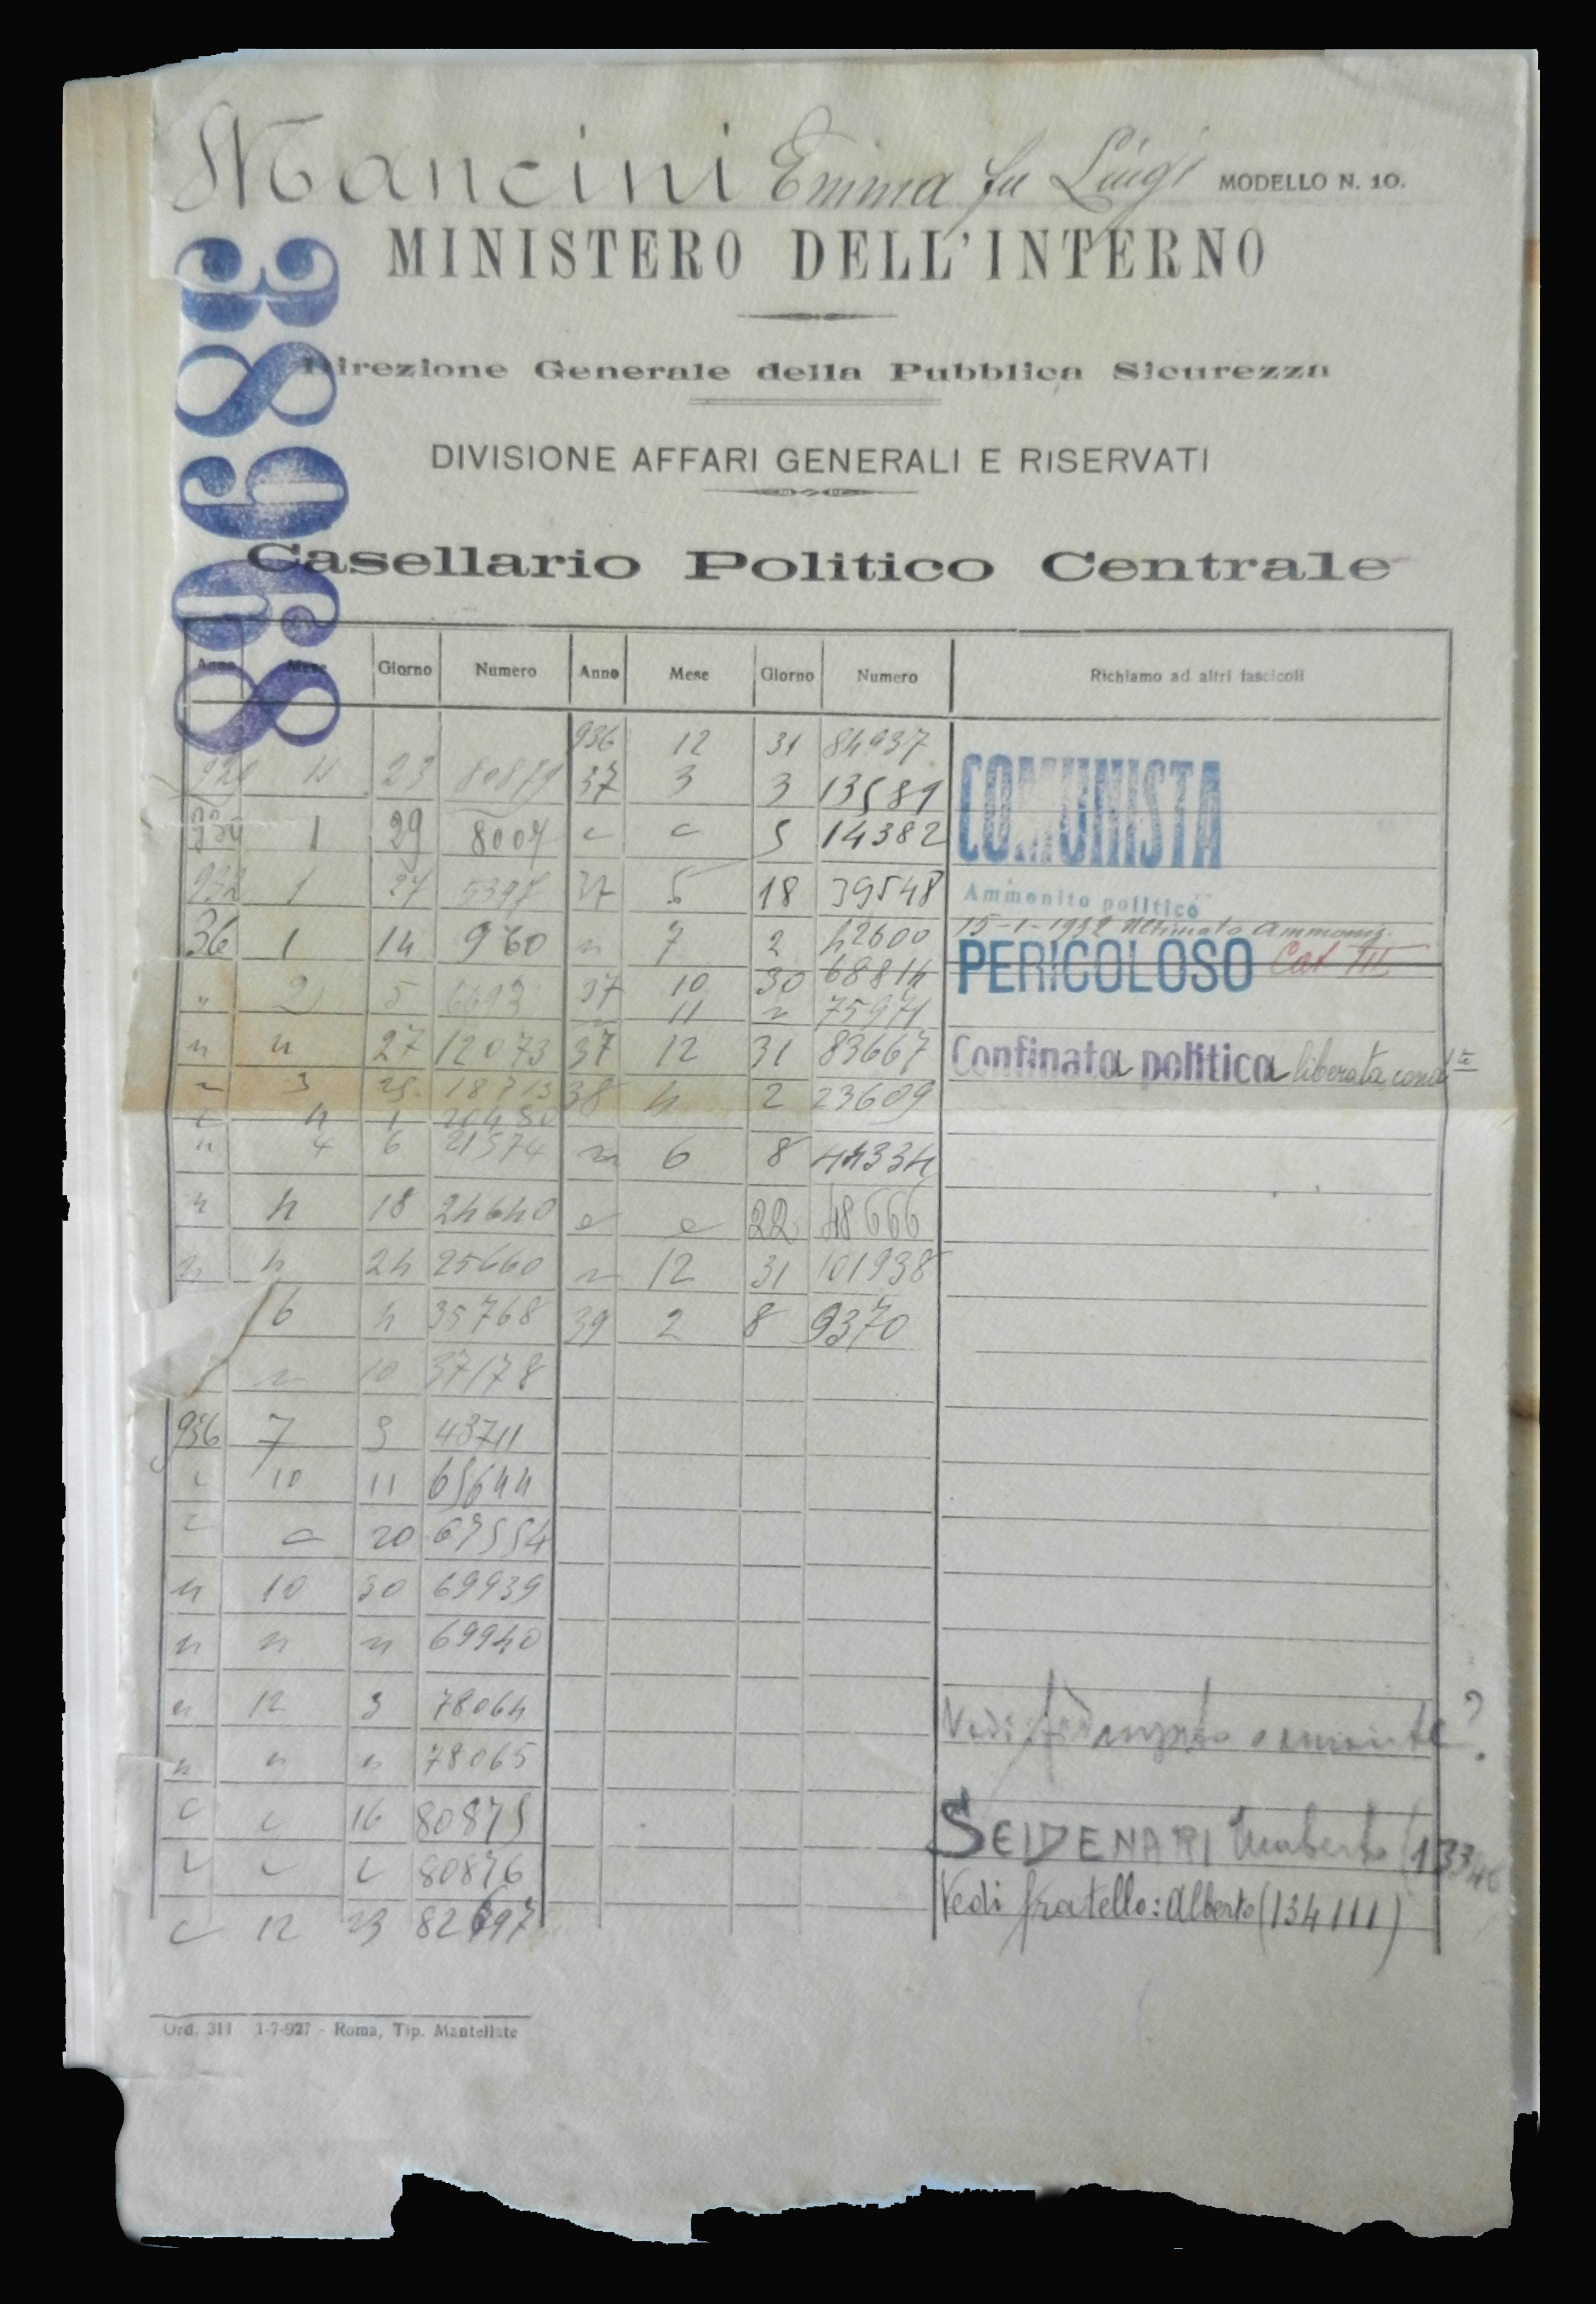 Mancini Emma fu Luigi MODELLO N. 10.
MINISTERO DELL'INTERNO
Direzione Generale della Pubblica Sicurezza
DIVISIONE AFFARI GENERALI E RISERVATI
Casellario Politico Centrale
Anno Mese Giorno Numero Anno Mese Giorno Numero Richiamo ad altri fascicoli
936 12 31 84937
23 80879 37 3 3 13581
1 29 8007 5 14382
COMUNISTA
932 1 5397 37 5 18 39548
Ammonito politico
36 1 14 960 " 7 2 42600
15-1-1932 Ultimato Ammoniz.
" 2 5 37 10 30 68814
PERICOLOSO Cat III
11 " 75971
" " 27 12073 37 12 31 83667
Confinata politica liberata cond
" 3 18713 38 4 2 23609
4 1
" 4 6 21574 " 6 8 44334
" 4 18 24640 22 48666
" 4 24 25660 " 12 31 101938
6 4 35768 39 2 8 9370
" 10 37178
936 7 3 43711
10 11 65644
20 67554
" 10 30 69939
" " " 69940
" 12 3 78064
" " " 78065
Vedi ?
16 80875
SEIDENARI Umberto
80876
Vedi fratello: Alberto (134111)
12 23 82697
Ord. 311 1-7-927 - Roma, Tip. Mantellate